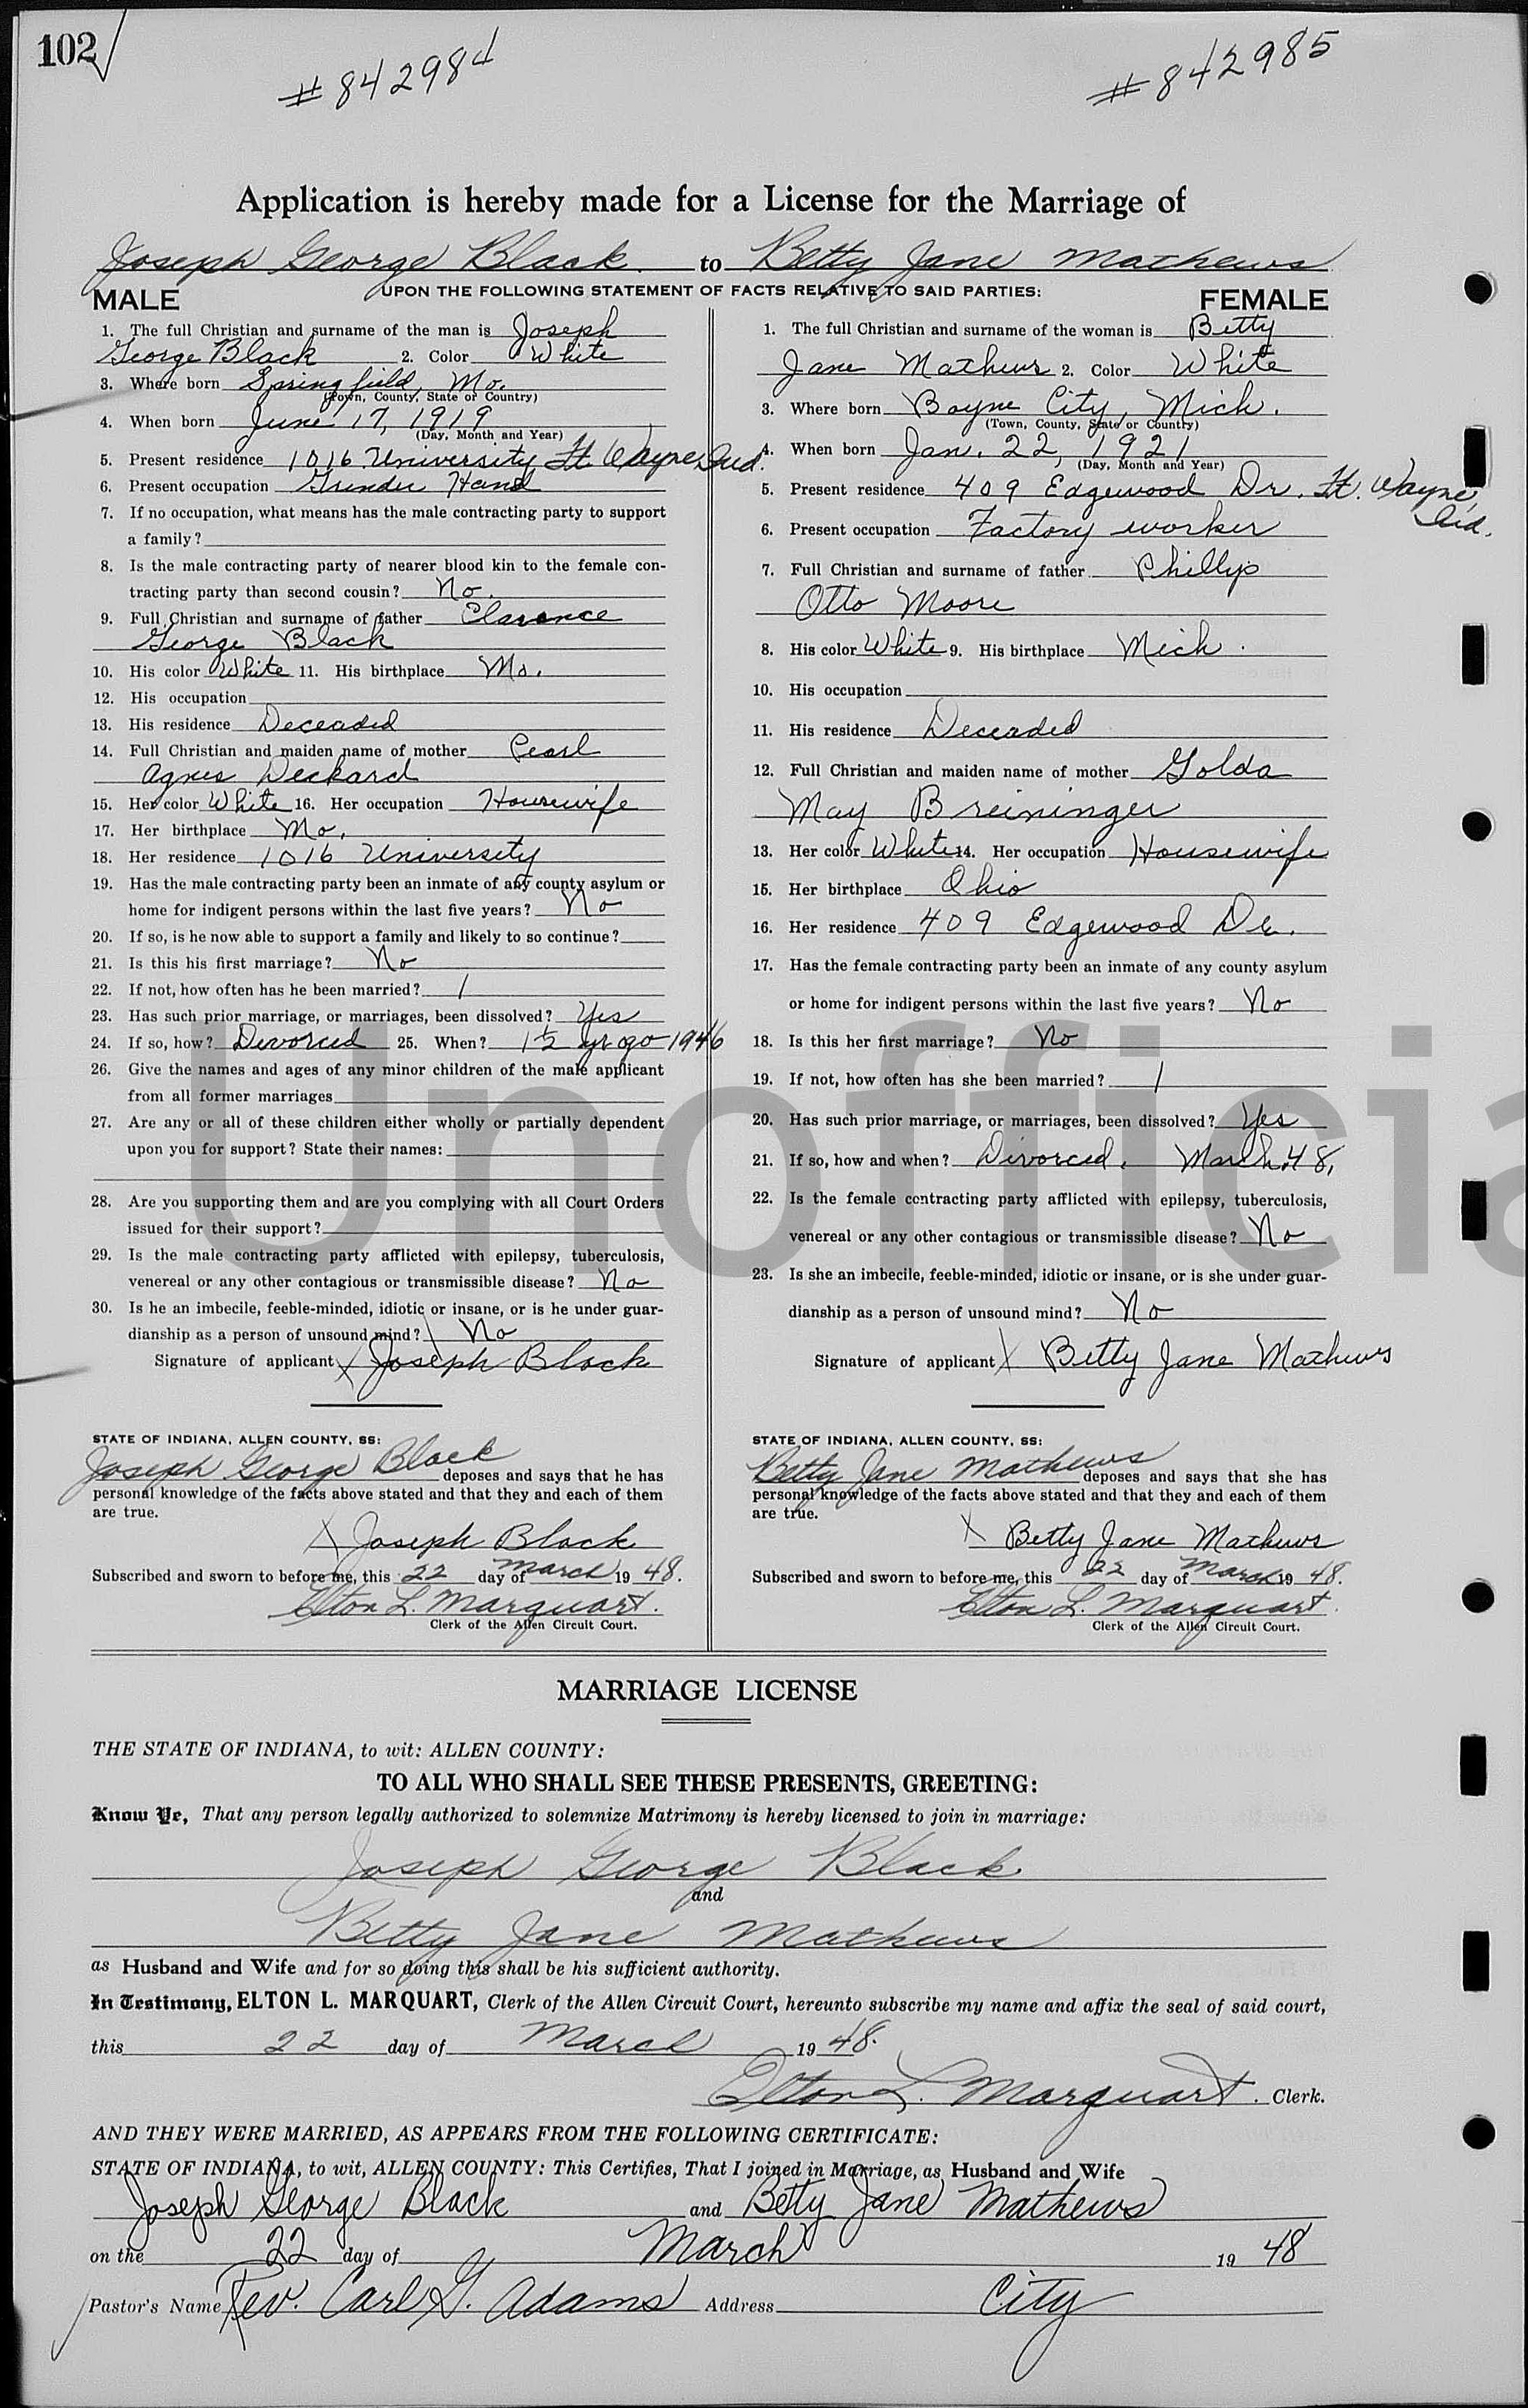 102
#842984
#842985
Application is hereby made for a License for the Marriage of
Joseph George Black to Betty Jane Mathews
UPON THE FOLLOWING STATEMENT OF FACTS RELATIVE TO SAID PARTIES:
MALE
1. The full Christian and surname of the man is Joseph
George Black 2. Color White
3. Where born Springfield, Mo.
(Town, County, State or Country)
4. When born June 17, 1919
(Day, Month and Year)
5. Present residence 1016 University Ft. Wayne, Ind.
6. Present occupation Grinder Hand
7. If no occupation, what means has the male contracting party to support
a family?
8. Is the male contracting party of nearer blood kin to the female con-
tracting party than second cousin? No.
9. Full Christian and surname of father Clarence
George Black
10. His color White 11. His birthplace Mo.
12. His occupation
13. His residence Deceaded
14. Full Christian and maiden name of mother Pearl
Agnes Deckard
15. Her color White 16. Her occupation Housewife
17. Her birthplace Mo.
18. Her residence 1016 University
19. Has the male contracting party been an inmate of any county asylum or
home for indigent persons within the last five years? No
20. If so, is he now able to support a family and likely to so continue?
21. Is this his first marriage? No
22. If not, how often has he been married? 1
23. Has such prior marriage, or marriages, been dissolved? Yes
24. If so, how? Divorced 25. When? 1½ yr ago 1946
26. Give the names and ages of any minor children of the male applicant
from all former marriages
27. Are any or all of these children either wholly or partially dependent
upon you for support? State their names:
28. Are you supporting them and are you complying with all Court Orders
issued for their support?
29. Is the male contracting party afflicted with epilepsy, tuberculosis,
venereal or any other contagious or transmissible disease? No
30. Is he an imbecile, feeble-minded, idiotic or insane, or is he under guar-
dianship as a person of unsound mind? No
Signature of applicant X Joseph Black
STATE OF INDIANA, ALLEN COUNTY, SS:
Joseph George Black deposes and says that he has
personal knowledge of the facts above stated and that they and each of them
are true.
X Joseph Black
Subscribed and sworn to before me, this 22 day of March 1948.
Elton L. Marquart.
Clerk of the Allen Circuit Court.
FEMALE
1. The full Christian and surname of the woman is Betty
Jane Mathews 2. Color White
3. Where born Boyne City, Mich.
(Town, County, State or Country)
4. When born Jan. 22, 1921
(Day, Month and Year)
5. Present residence 409 Edgewood Dr. Ft. Wayne,
Ind.
6. Present occupation Factory worker
7. Full Christian and surname of father Phillip
Otto Moore
8. His color White 9. His birthplace Mich.
10. His occupation
11. His residence Deceaded
12. Full Christian and maiden name of mother Golda
May Breininger
13. Her color White 14. Her occupation Housewife
15. Her birthplace Ohio
16. Her residence 409 Edgewood Dr.
17. Has the female contracting party been an inmate of any county asylum
or home for indigent persons within the last five years? No
18. Is this her first marriage? No
19. If not, how often has she been married? 1
20. Has such prior marriage, or marriages, been dissolved? Yes
21. If so, how and when? Divorced. March, 48,
22. Is the female contracting party afflicted with epilepsy, tuberculosis,
venereal or any other contagious or transmissible disease? No
23. Is she an imbecile, feeble-minded, idiotic or insane, or is she under guar-
dianship as a person of unsound mind? No
Signature of applicant X Betty Jane Mathews
STATE OF INDIANA, ALLEN COUNTY, SS:
Betty Jane Mathews deposes and says that she has
personal knowledge of the facts above stated and that they and each of them
are true.
X Betty Jane Mathews
Subscribed and sworn to before me, this 22 day of March 1948.
Elton L. Marquart.
Clerk of the Allen Circuit Court.
Unofficia
MARRIAGE LICENSE
THE STATE OF INDIANA, to wit: ALLEN COUNTY:
TO ALL WHO SHALL SEE THESE PRESENTS, GREETING:
Know Ye, That any person legally authorized to solemnize Matrimony is hereby licensed to join in marriage:
Joseph George Black
and
Betty Jane Mathews
as Husband and Wife and for so doing this shall be his sufficient authority.
In Testimony, ELTON L. MARQUART, Clerk of the Allen Circuit Court, hereunto subscribe my name and affix the seal of said court,
this 22 day of March 1948.
Elton L. Marquart. Clerk.
AND THEY WERE MARRIED, AS APPEARS FROM THE FOLLOWING CERTIFICATE:
STATE OF INDIANA, to wit, ALLEN COUNTY: This Certifies, That I joined in Marriage, as Husband and Wife
Joseph George Black and Betty Jane Mathews
on the 22 day of March 19 48
Pastor's Name Rev. Carl G. Adams Address City